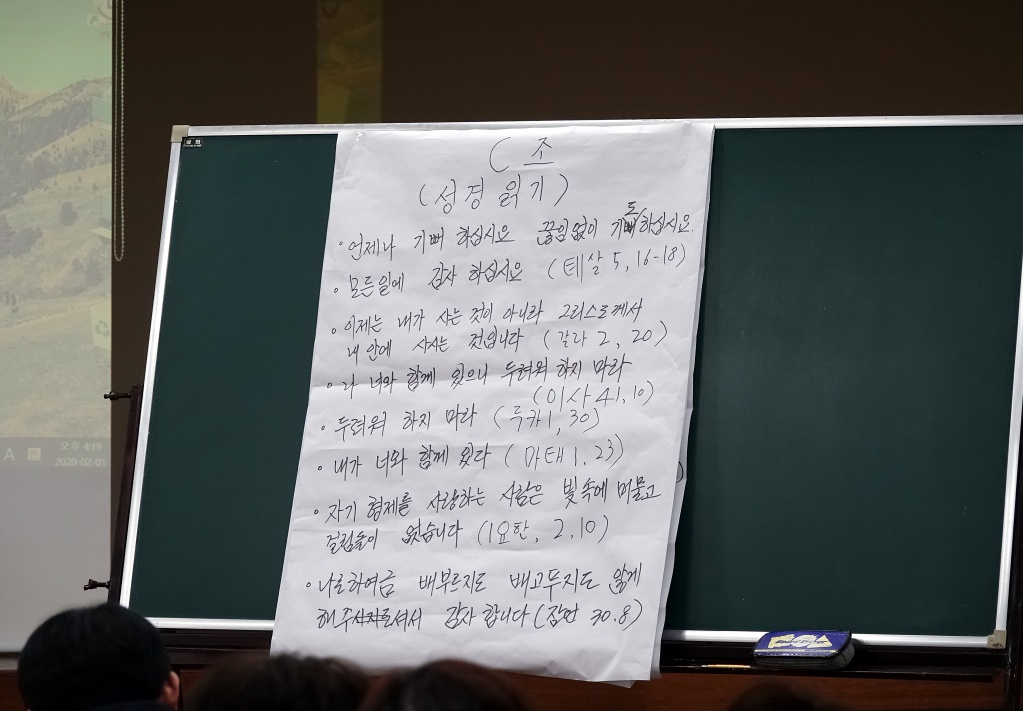 C 조
(성경 읽기)
• 언제나 기뻐 하십시요 끊임없이 기도하십시요.
• 모든일에 감사 하십시요 (테살 5, 16-18)
• 이제는 내가 사는 것이 아니라 그리스도께서
내 안에 사시는 것입니다 (갈라 2, 20)
• 나 너와 함께 있으니 두려워 하지 마라
(이사 41, 10)
• 두려워 하지 마라 (루카 1, 30)
• 내가 너와 함께 있다 (마태 1. 23)
• 자기 형제를 사랑하는 사람은 빛속에 머물고
걸림돌이 없습니다 (1요한, 2. 10)
• 나로하여금 배부르지도 배고푸지도 않게
해 주셔서 감사 합니다 (잠언 30. 8)
A
오후 4:19
2020-02-01